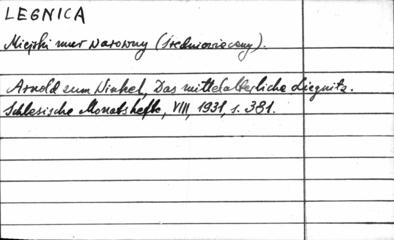 LEGNICA
Miejski mur warowny (średniowieczny).
Arnold zum Winkel, Das mittelalterliche Liegnitz.
Schlesische Monatshefte, VIII, 1931, s. 381.